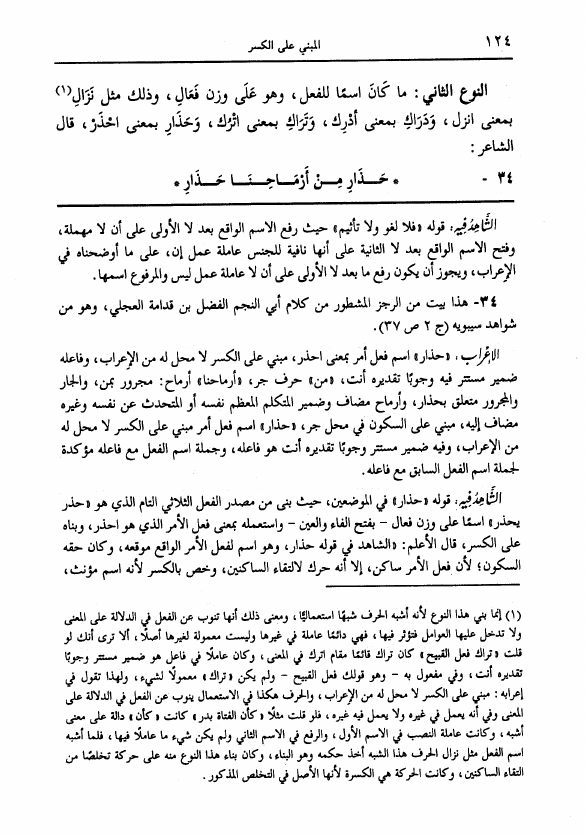 ١٢٤
المبني على الكسر
النوع الثاني: ما كَانَ اسمًا للفعل، وهو عَلَى وزن فَعَالِ، وذلك مثل نَزَالِ(١)
بمعنى انزل، وَدَرَاكِ بمعنى أدْرِك، وَتَرَاكِ بمعنى اتْرُك، وَحَذَارِ بمعنى احْذَرْ، قال
الشاعر:
٣٤ - * حَـذَارِ مِـنْ أَرْمَـاحِـنَـا حَـذَارِ *
الشَّاهِدُ فِيهِ: قوله «فلا لغو ولا تأثيم» حيث رفع الاسم الواقع بعد لا الأولى على أن لا مهملة،
وفتح الاسم الواقع بعد لا الثانية على أنها نافية للجنس عاملة عمل إن، على ما أوضحناه في
الإعراب، ويجوز أن يكون رفع ما بعد لا الأولى على أن لا عاملة عمل ليس والمرفوع اسمها.
٣٤- هذا بيت من الرجز المشطور من كلام أبي النجم الفضل بن قدامة العجلي، وهو من
شواهد سيبويه (ج ٢ ص ٣٧).
الإعْرَاب: «حذار» اسم فعل أمر بمعنى احذر، مبني على الكسر لا محل له من الإعراب، وفاعله
ضمير مستتر فيه وجوبًا تقديره أنت، «من» حرف جر، «أرماحنا» أرماح: مجرور بمن، والجار
والمجرور متعلق بحذار، وأرماح مضاف وضمير المتكلم المعظم نفسه أو المتحدث عن نفسه وغيره
مضاف إليه، مبني على السكون في محل جر، «حذار» اسم فعل أمر مبني على الكسر لا محل له
من الإعراب، وفيه ضمير مستتر وجوبًا تقديره أنت هو فاعله، وجملة اسم الفعل مع فاعله مؤكدة
لجملة اسم الفعل السابق مع فاعله.
الشَّاهِدُ فِيهِ: قوله «حذار» في الموضعين، حيث بنى من مصدر الفعل الثلاثي التام الذي هو «حذر
يحذر» اسمًا على وزن فعال - بفتح الفاء والعين - واستعمله بمعنى فعل الأمر الذي هو احذر، وبناه
على الكسر، قال الأعلم: «الشاهد في قوله حذار، وهو اسم لفعل الأمر الواقع موقعه، وكان حقه
السكون؛ لأن فعل الأمر ساكن، إلا أنه حرك لالتقاء الساكنين، وخص بالكسر لأنه اسم مؤنث،
(١) إنما بني هذا النوع لأنه أشبه الحرف شبهًا استعماليًّا، ومعنى ذلك أنها تنوب عن الفعل في الدلالة على المعنى
ولا تدخل عليها العوامل فتؤثر فيها، فهي دائمًا عاملة في غيرها وليست معمولة لغيرها أصلًا، ألا ترى أنك لو
قلت «تراك فعل القبيح» كان تراك قائمًا مقام اترك في المعنى، وكان عاملًا في فاعل هو ضمير مستتر وجوبًا
تقديره أنت، وفي مفعول به - وهو قولك فعل القبيح - ولم يكن «تراك» معمولًا لشيء، ولهذا تقول في
إعرابه: مبني على الكسر لا محل له من الإعراب، والحرف هكذا في الاستعمال ينوب عن الفعل في الدلالة على
المعنى وفي أنه يعمل في غيره ولا يعمل فيه غيره، فلو قلت مثلًا «كأن الفتاة بدر» كانت «كأن» دالة على معنى
أشبه، وكانت عاملة النصب في الاسم الأول، والرفع في الاسم الثاني ولم يكن شيء ما عاملًا فيها، فلما أشبه
اسم الفعل مثل نزال الحرف هذا الشبه أخذ حكمه وهو البناء، وكان بناء هذا النوع منه على حركة تخلصًا من
التقاء الساكنين، وكانت الحركة هي الكسرة لأنها الأصل في التخلص المذكور.